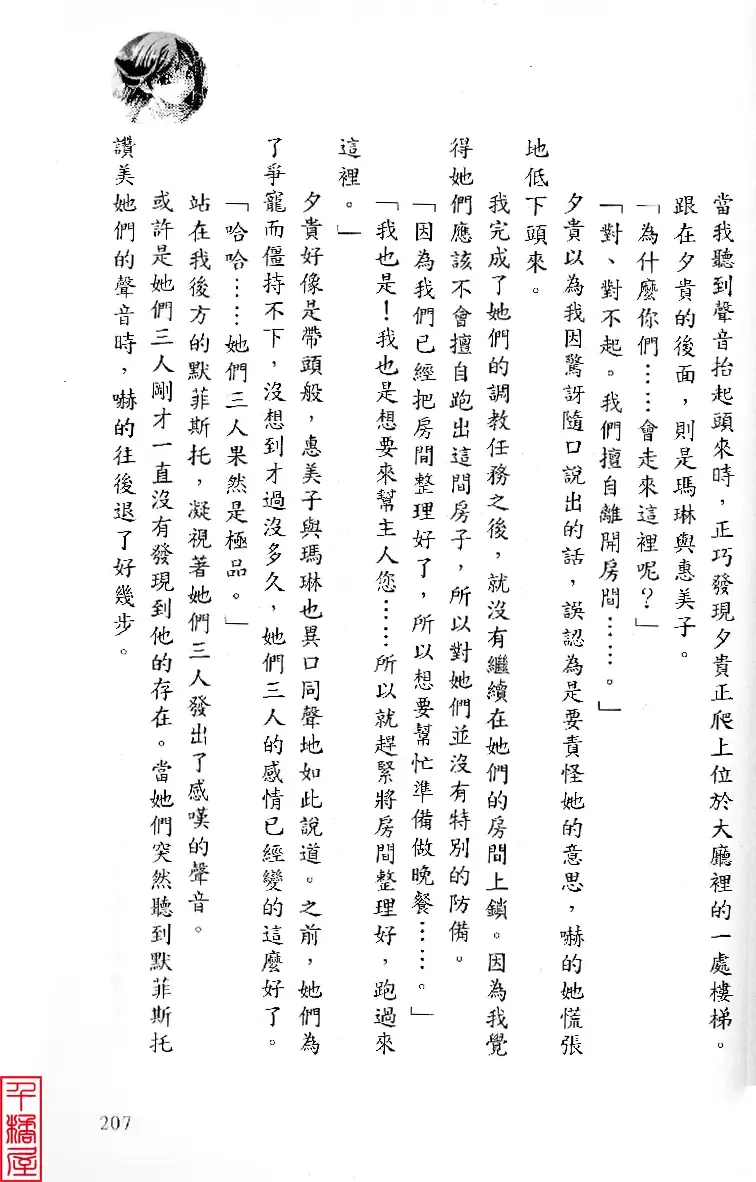 當我聽到聲音抬起頭來時，正巧發現夕貴正爬上位於大廳裡的一處樓梯。
跟在夕貴的後面，則是瑪琳與惠美子。
「為什麼你們……會走來這裡呢？」
「對、對不起。我們擅自離開房間……。」
夕貴以為我因驚訝隨口說出的話，誤認為是要責怪她的意思，嚇的她慌張
地低下頭來。
我完成了她們的調教任務之後，就沒有繼續在她們的房間上鎖。因為我覺
得她們應該不會擅自跑出這間房子，所以對她們並沒有特別的防備。
「因為我們已經把房間整理好了，所以想要幫忙準備做晚餐……。」
「我也是！我也是想要來幫主人您……所以就趕緊將房間整理好，跑過來
這裡。」
夕貴好像是帶頭般，惠美子與瑪琳也異口同聲地如此說道。之前，她們為
了爭寵而僵持不下，沒想到才過沒多久，她們三人的感情已經變的這麼好了。
「哈哈……她們三人果然是極品。」
站在我後方的默菲斯托，凝視著她們三人發出了感嘆的聲音。
或許是她們三人剛才一直沒有發現到他的存在。當她們突然聽到默菲斯托
讚美她們的聲音時，嚇的往後退了好幾步。
207
千橘屋